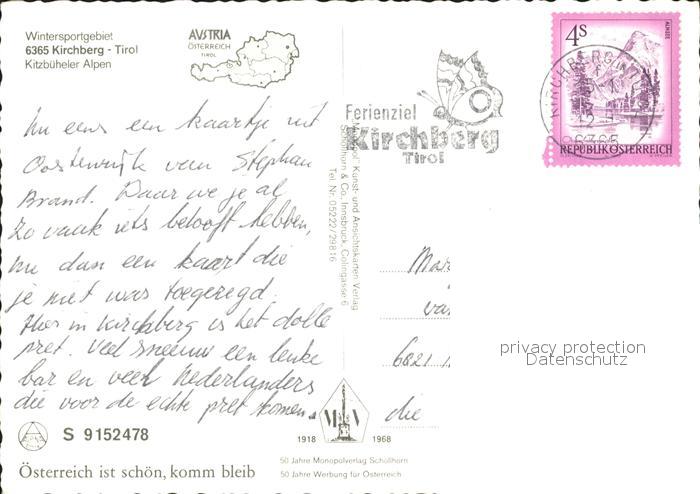 Wintersportgebiet
6365 Kirchberg - Tirol
Kitzbüheler Alpen
AVSTRIA
ÖSTERREICH
TIROL
Nu eens een kaartje uit
Oostenrijk van Stephan
Brand. Daar we je al
zo vaak iets belooft hebben,
nu dan een kaart die
je niet was toegezegd.
Hier in Kirchberg is het dolle
pret. Veel sneeuw een leuke
bar en veel Nederlanders
die voor de echte pret komen.
S 9152478
Österreich ist schön, komm bleib
Ferienziel
Kirchberg
Tirol
"Monopol" Kunst- und Ansichtskarten Verlag
Schöllhorn & Co, Innsbruck, Colingasse 6
Tel Nr. 05222/29816
4S
ALMSEE
KIRCHBERG IN TIROL
6365
REPUBLIK ÖSTERREICH
Mar
va
6821
die
privacy protection
Datenschutz
1918 1968
50 Jahre Monopolverlag Schöllhorn
50 Jahre Werbung für Österreich